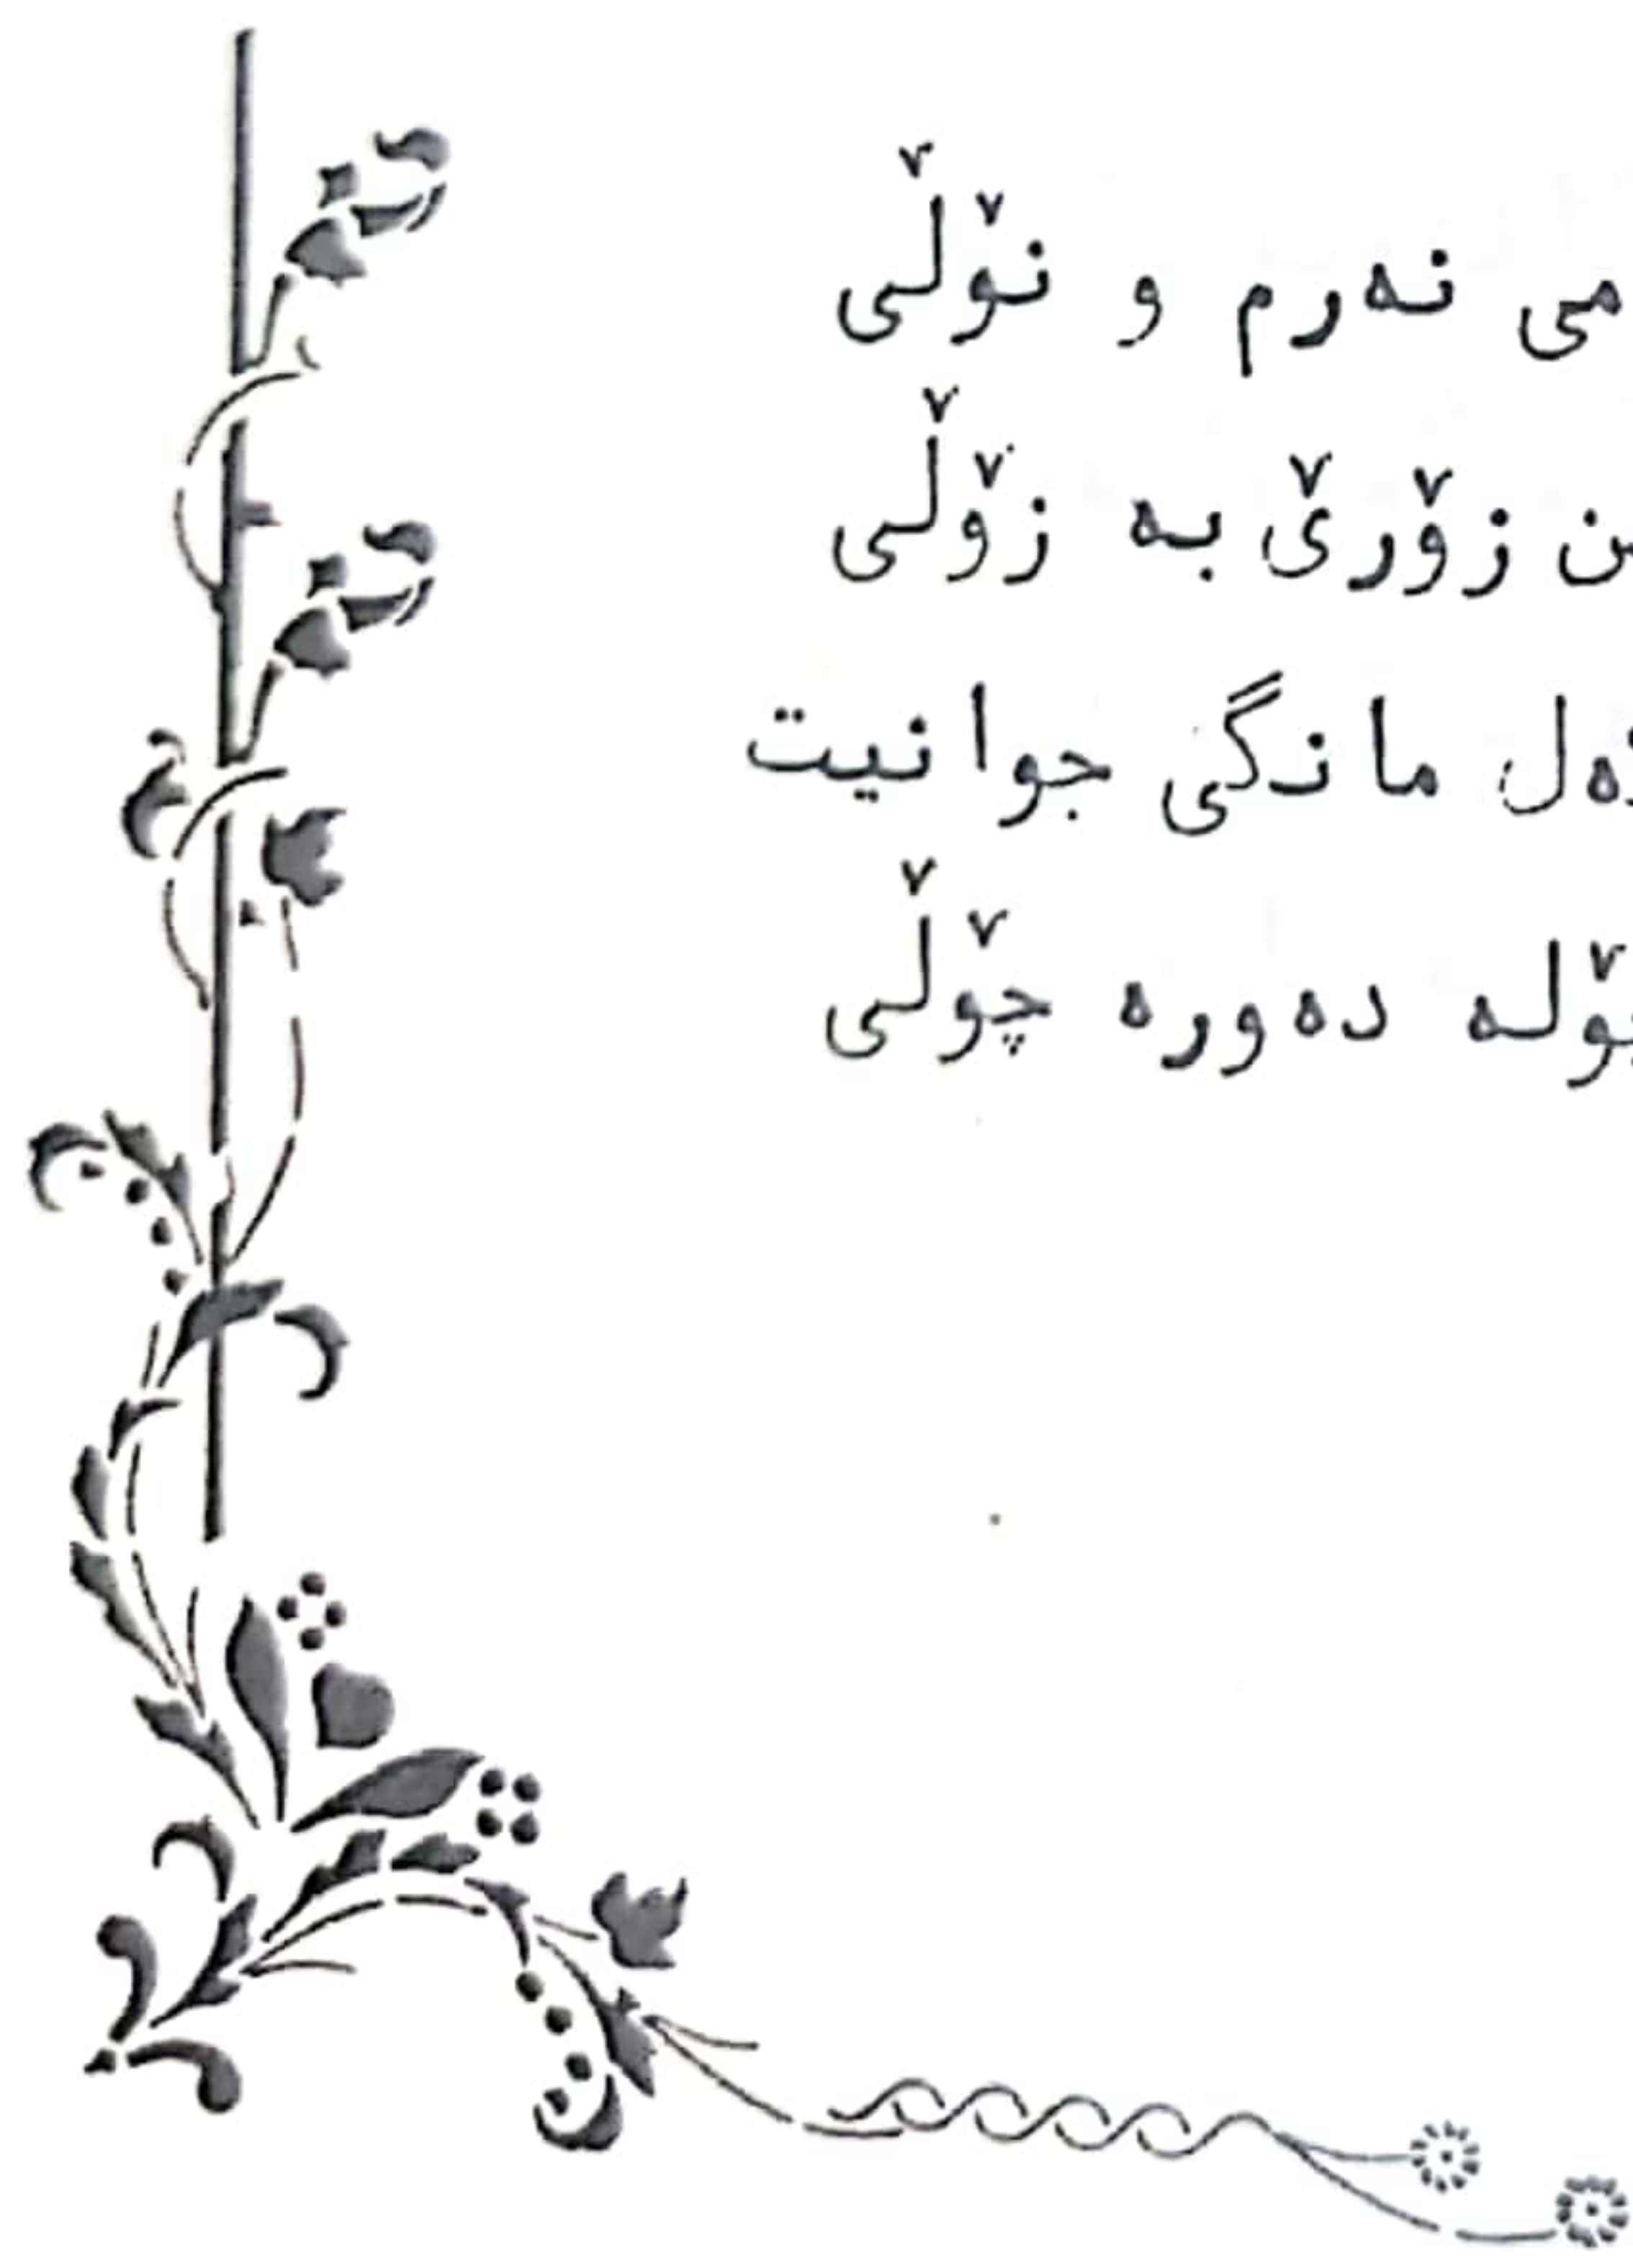 می نەرم و نۆڵی
زۆرێ بە زۆڵی
مانگی جوانیت
دەورە چۆڵی